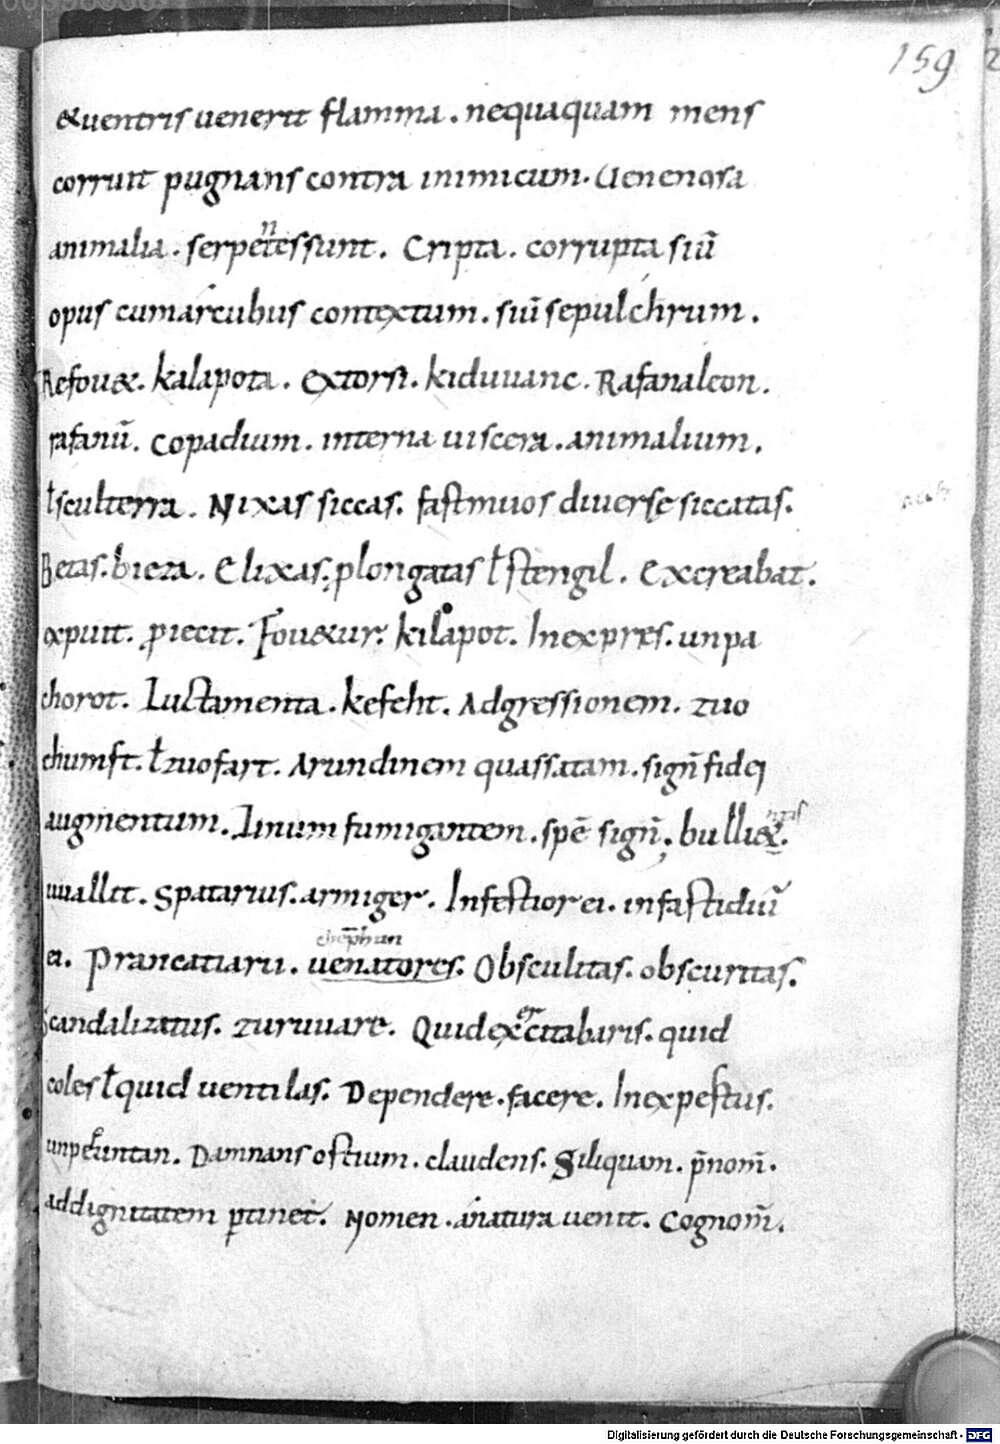 159
&uentris uenerit flamma. nequaquam mens
corruit pugnans contra inimicum. Uenenosa
animalia. serpentes sunt. Cripta. corrupta siū
opus cum arcubus contextum. siū sepulchrum.
Refou&. kalapota. Extorsi. kiduuanc. Rafanaleon.
rafanū. Copadium. interna uiscera. animalium.
ł sculterra. Nixas siccas. fastmuos diuerse siccatas.
Betas. bieza. Elixas. plongatas ł stengil. Excreabat.
expuit. piecit. Fou&ur. kilapot. Inexpres. unpa
chorot. Luctamenta. kefeht. Adgressionem. zuo
chumft. ł zuofart. Arundinem quassatam. sign̄ fidei
augmentum. Linum fumigantem. spē sign̄. bulli&.
uuallit. Spatarius. armiger. Infestior ei. in fastidiū
chephun
ei. Prancatiarii. uenatores. Obsculitas. obscuritas.
Scandalizatus. zuruuare. Quid excitabaris. quid
coles ł quid uentilas. Dependere. facere. Inexpestus.
unperuntan. Damnans ostium. claudens. Siliquam. p̄nom̄.
ad dignitatem ptinet. Nomen. a natura uenit. Cognom̄.
Digitalisierung gefördert durch die Deutsche Forschungsgemeinschaft - DFG